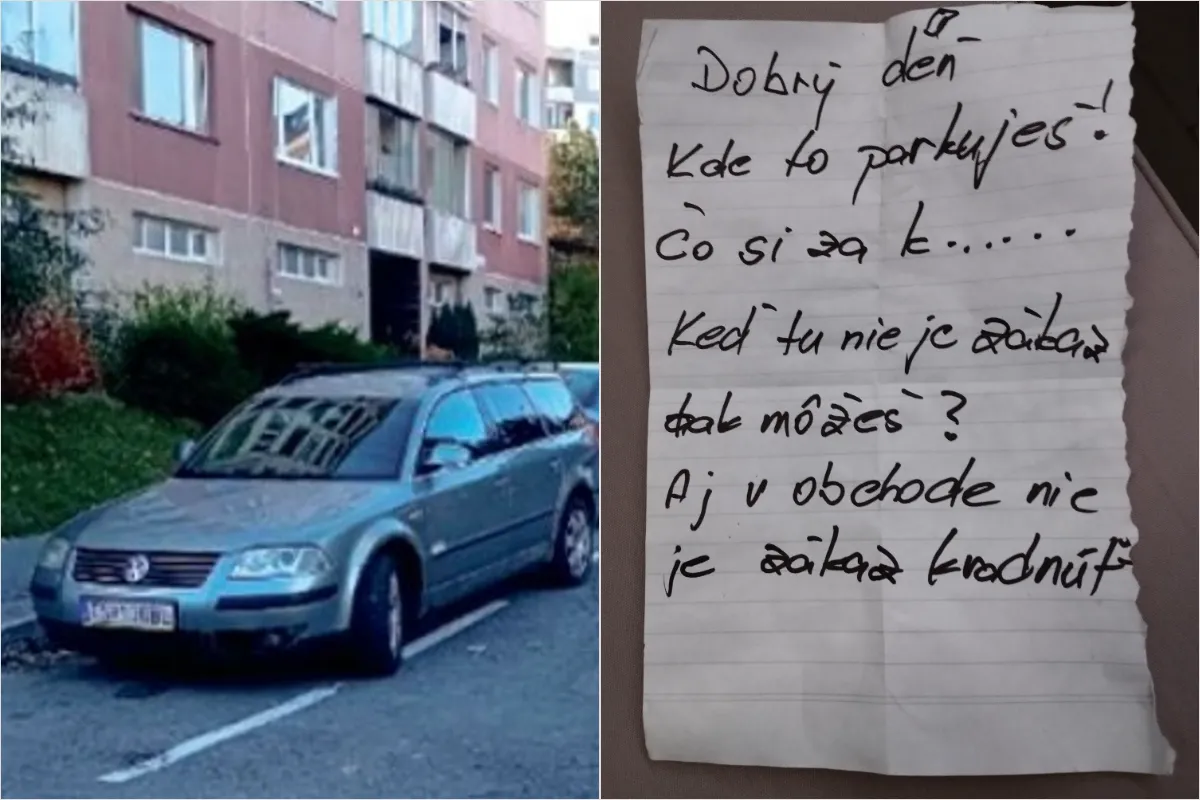 Dobrý deň
Kde to parkuješ!
Čo si za k......
Keď tu nie je zákaz
tak môžeš?
Aj v obchode nie
je zákaz kradnúť